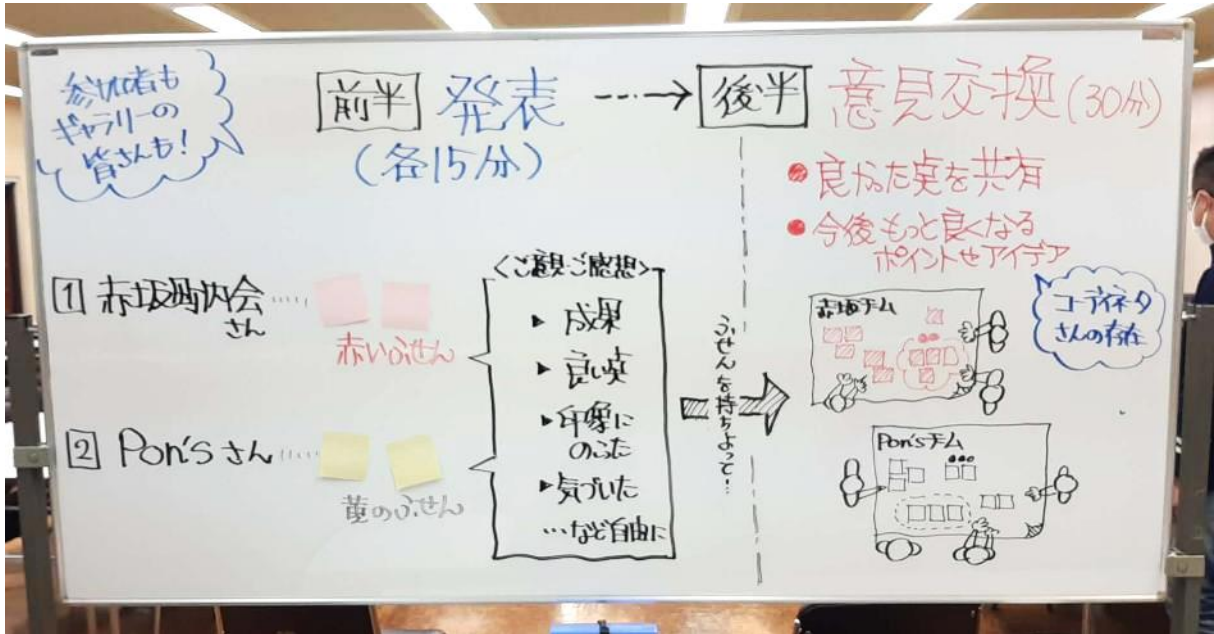 参加者も
ギャラリーの
皆さんも!
前半 発表
(各15分)
後半 意見交換(30分)
●良かった点を共有
●今後もっと良くなる
ポイントやアイデア
1 赤坂町内会
さん
赤いふせん
2 Pon'sさん
黄のふせん
<ご意見・ご感想>
▶成果
▶良い点
▶印象に
のこった
▶気づいた
…など自由に
ふせんを持ちよって!…
赤坂チーム
コーディネータ
さんの存在
Pon'sチーム